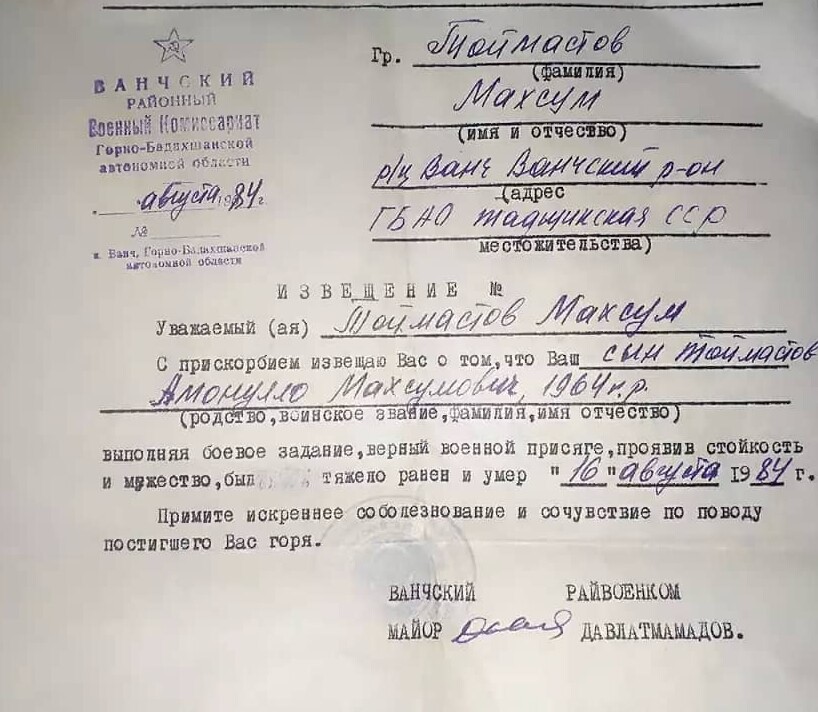 ВАНЧСКИЙ
РАЙОННЫЙ
Военный Комиссариат
Горно-Бадахшанской
автономной области
августа 1984 г.
№
к. Ванч, Горно-Бадахшанской
автономной области
Гр. Тоймастов
(фамилия)
Махсум
(имя и отчество)
р/ц Ванч Ванчский р-он
(адрес
ГБАО Таджикская ССР
местожительства)
ИЗВЕЩЕНИЕ №
Уважаемый (ая) Тоймастов Махсум
С прискорбием извещаю Вас о том, что Ваш сын Тоймастов
Амонулло Махсумович, 1964 г.р.
(родство, воинское звание, фамилия, имя отчество)
выполняя боевое задание, верный военной присяге, проявив стойкость
и мужество, был тяжело ранен и умер "16" августа 1984 г.
Примите искреннее соболезнование и сочувствие по поводу
постигшего Вас горя.
ВАНЧСКИЙ РАЙВОЕНКОМ
МАЙОР ДАВЛАТМАМАДОВ.